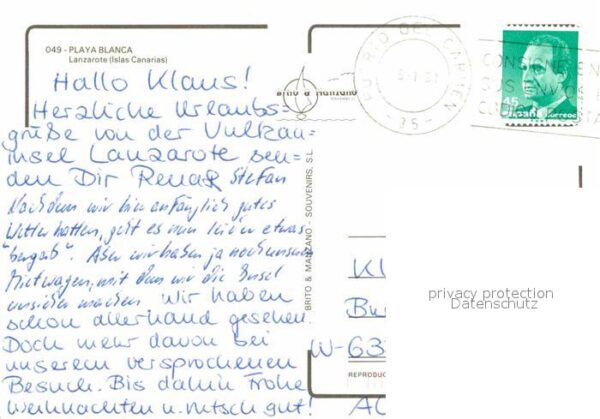 049 - PLAYA BLANCA
Lanzarote (Islas Canarias)
Hallo Klaus!
Herzliche Urlaubs-
grüße von der Vulkan-
insel Lanzarote sen-
den Dir Renate Stefan
Nachdem wir hier anfänglich gutes
Wetter hatten, geht es nun leider etwas
"bergab". Aber wir haben ja noch unseren
Mietwagen, mit dem wir die Insel
unsicher machen. Wir haben
schon allerhand gesehen.
Doch mehr davon bei
unserem versprochenen
Besuch. Bis dahin frohe
Weihnachten u. rutsch gut!
BRITO & MANZANO - SOUVENIRS, S.L
Brito & Manzano
PTO DEL CARMEN
- 35 -
CONSIGNE EN
SUS ENVIOS EL
45
España correos
Kl
Bu
W-63
REPRODUC
privacy protection
Datenschutz